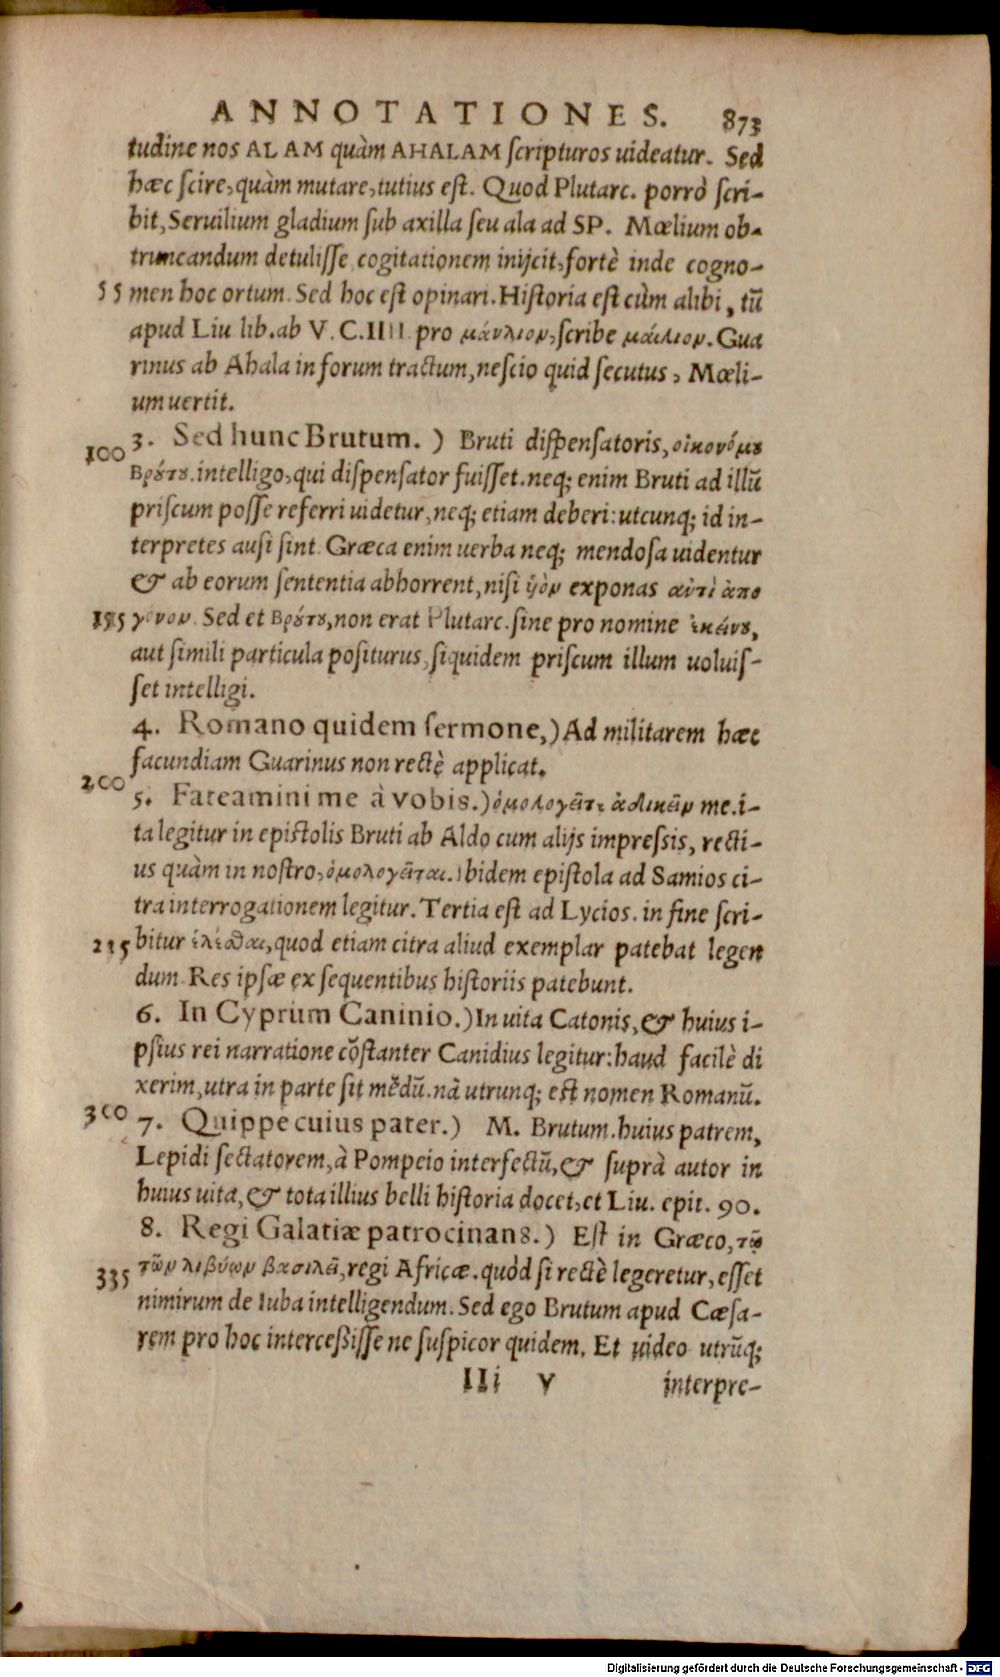 ANNOTATIONES. 873
tudine nos ALAM quàm AHALAM ſcripturos uideatur. Sed
hæc ſcire, quàm mutare, tutius eſt. Quod Plutarc. porrò ſcri-
bit, Seruilium gladium ſub axilla ſeu ala ad SP. Mœlium ob-
truncandum detuliſſe cogitationem inijcit, fortè inde cogno-
55 men hoc ortum. Sed hoc eſt opinari. Hiſtoria eſt cùm alibi, tũ
apud Liu. lib. ab V. C. IIII. pro μάνλιον, ſcribe μαίλιον. Gua
rinus ab Ahala in forum tractum, neſcio quid ſecutus, Mœli-
um uertit.
100 3. Sed hunc Brutum.) Bruti diſpenſatoris, οἰκονόμου
Βρούτου. intelligo, qui diſpenſator fuiſſet. neq; enim Bruti ad illũ
priſcum poſſe referri uidetur, neq; etiam deberi: utcunq; id in-
terpretes auſi ſint. Græca enim uerba neq; mendoſa uidentur
& ab eorum ſententia abhorrent, niſi ὑὸν exponas αὐτὶ ἀπο
195 γόνον. Sed et Βρούτου, non erat Plutarc. ſine pro nomine ἐκείνου,
aut ſimili particula poſiturus, ſiquidem priſcum illum uoluiſ-
ſet intelligi.
4. Romano quidem ſermone,) Ad militarem hæc
facundiam Guarinus non rectè applicat.
200 5. Fateamini me à vobis.) ὁμολογεῖτε ἀδικεῖν me. i-
ta legitur in epiſtolis Bruti ab Aldo cum alijs impreſsis, recti-
us quàm in noſtro, ὁμολογεῖται. Ibidem epiſtola ad Samios ci-
tra interrogationem legitur. Tertia eſt ad Lycios. in fine ſcri-
215 bitur ἑλέσθαι, quod etiam citra aliud exemplar patebat legen
dum. Res ipſæ ex ſequentibus hiſtoriis patebunt.
6. In Cyprum Caninio.) In uita Catonis, & huius i-
pſius rei narratione cõſtanter Canidius legitur: haud facilè di
xerim, utra in parte ſit mẽdũ. nã utrunq; eſt nomen Romanũ.
300 7. Quippe cuius pater.) M. Brutum. huius patrem,
Lepidi ſectatorem, à Pompeio interfectũ, & ſuprà autor in
huius uita, & tota illius belli hiſtoria docet, et Liu. epit. 90.
8. Regi Galatiæ patrocinans.) Eſt in Græco, τῷ
335 τῶν λιβύων βασιλεῖ, regi Africæ. quòd ſi rectè legeretur, eſſet
nimirum de Iuba intelligendum. Sed ego Brutum apud Cæſa-
rem pro hoc interceßiſſe ne ſuſpicor quidem. Et uideo utrũq;
IIi v interpre-
Digitalisierung gefördert durch die Deutsche Forschungsgemeinschaft - DFG